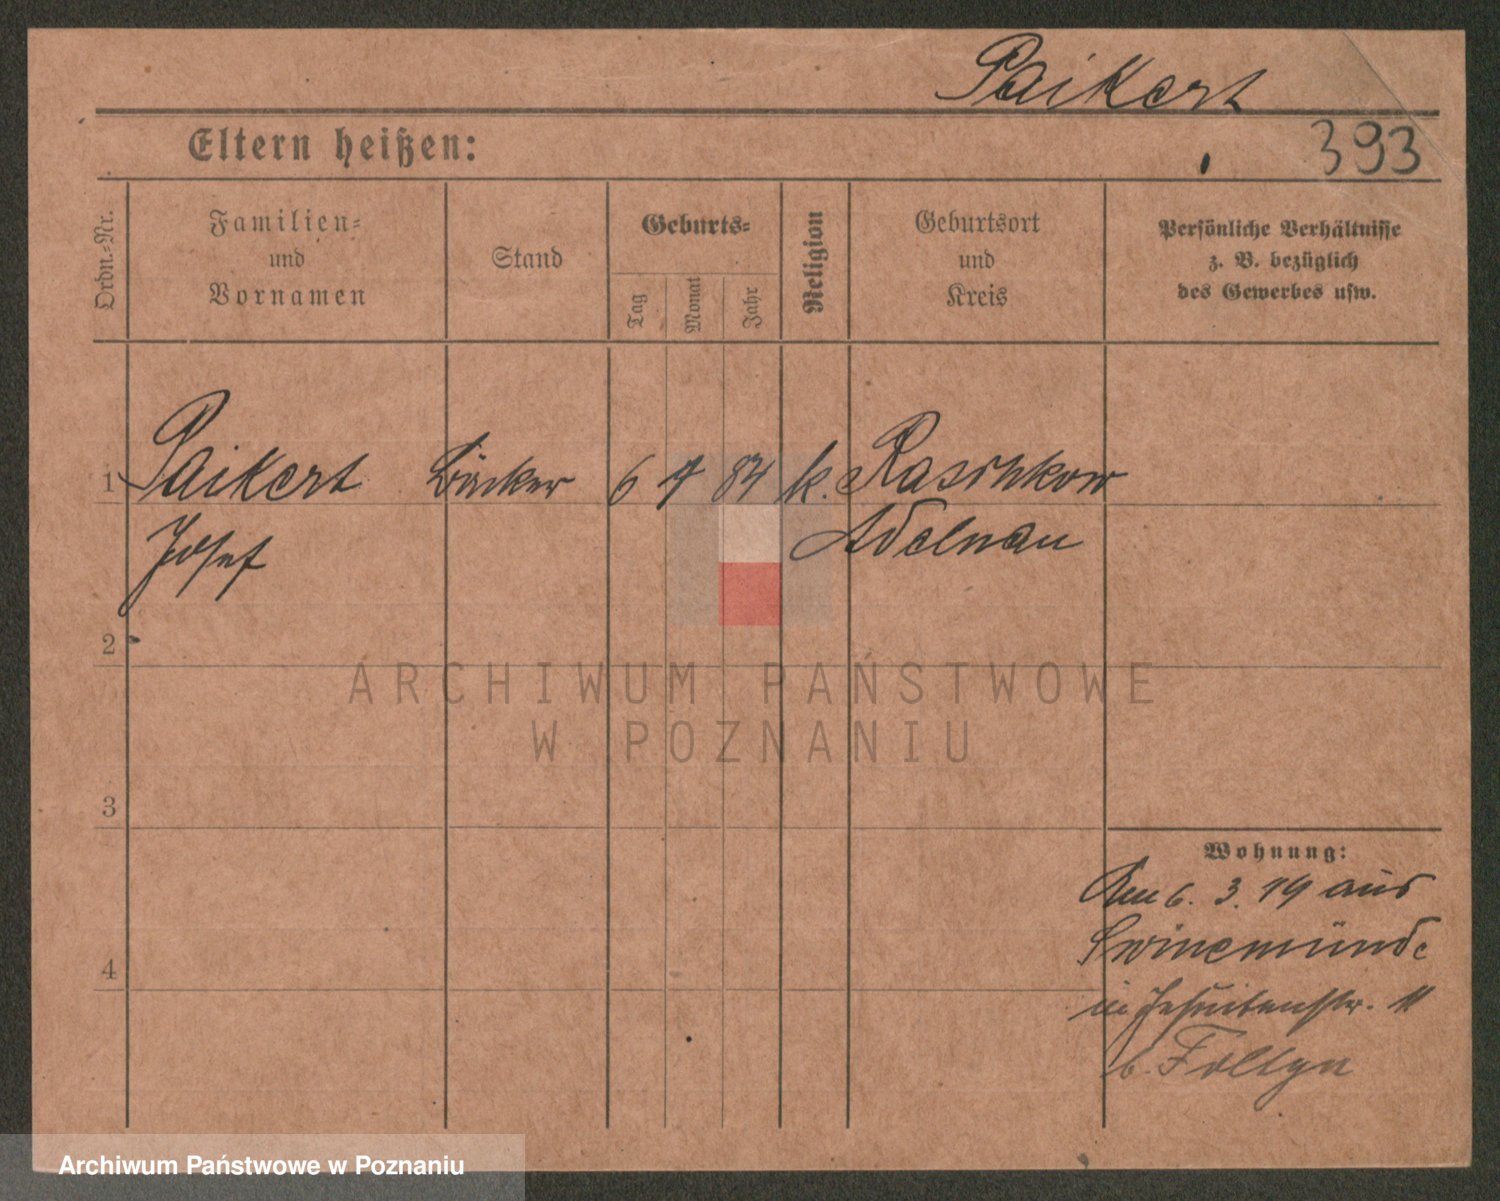 Paikert
393
Eltern heißen:
Ordn.-Nr.
Familien-
und
Vornamen
Stand
Geburts-
Tag
Monat
Jahr
Religion
Geburtsort
und
Kreis
Persönliche Verhältnisse
z. B. bezüglich
des Gewerbes usw.
1 Paikert Bäcker 6 7 84 k. Raschkow
Josef Adelnau
2
3
4
Wohnung:
Den 6. 3. 19 aus
Swinemünde
in Jesuitenstr. 11
b. Follyn
ARCHIWUM PAŃSTWOWE
W POZNANIU
Archiwum Państwowe w Poznaniu